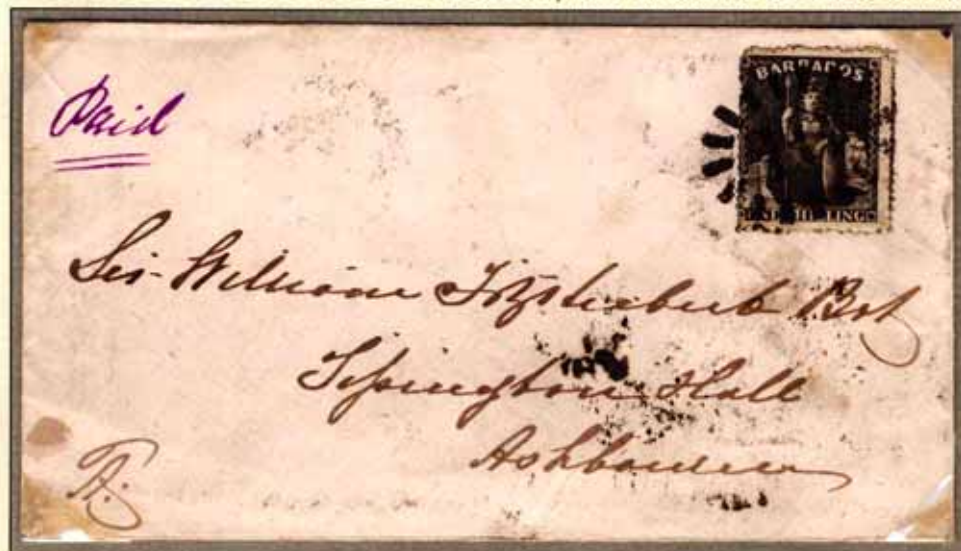 Paid
BARBADOS
ONE SHILLING
Sir William Fitzherbert Bart
Tissington Hall
Ashbourne